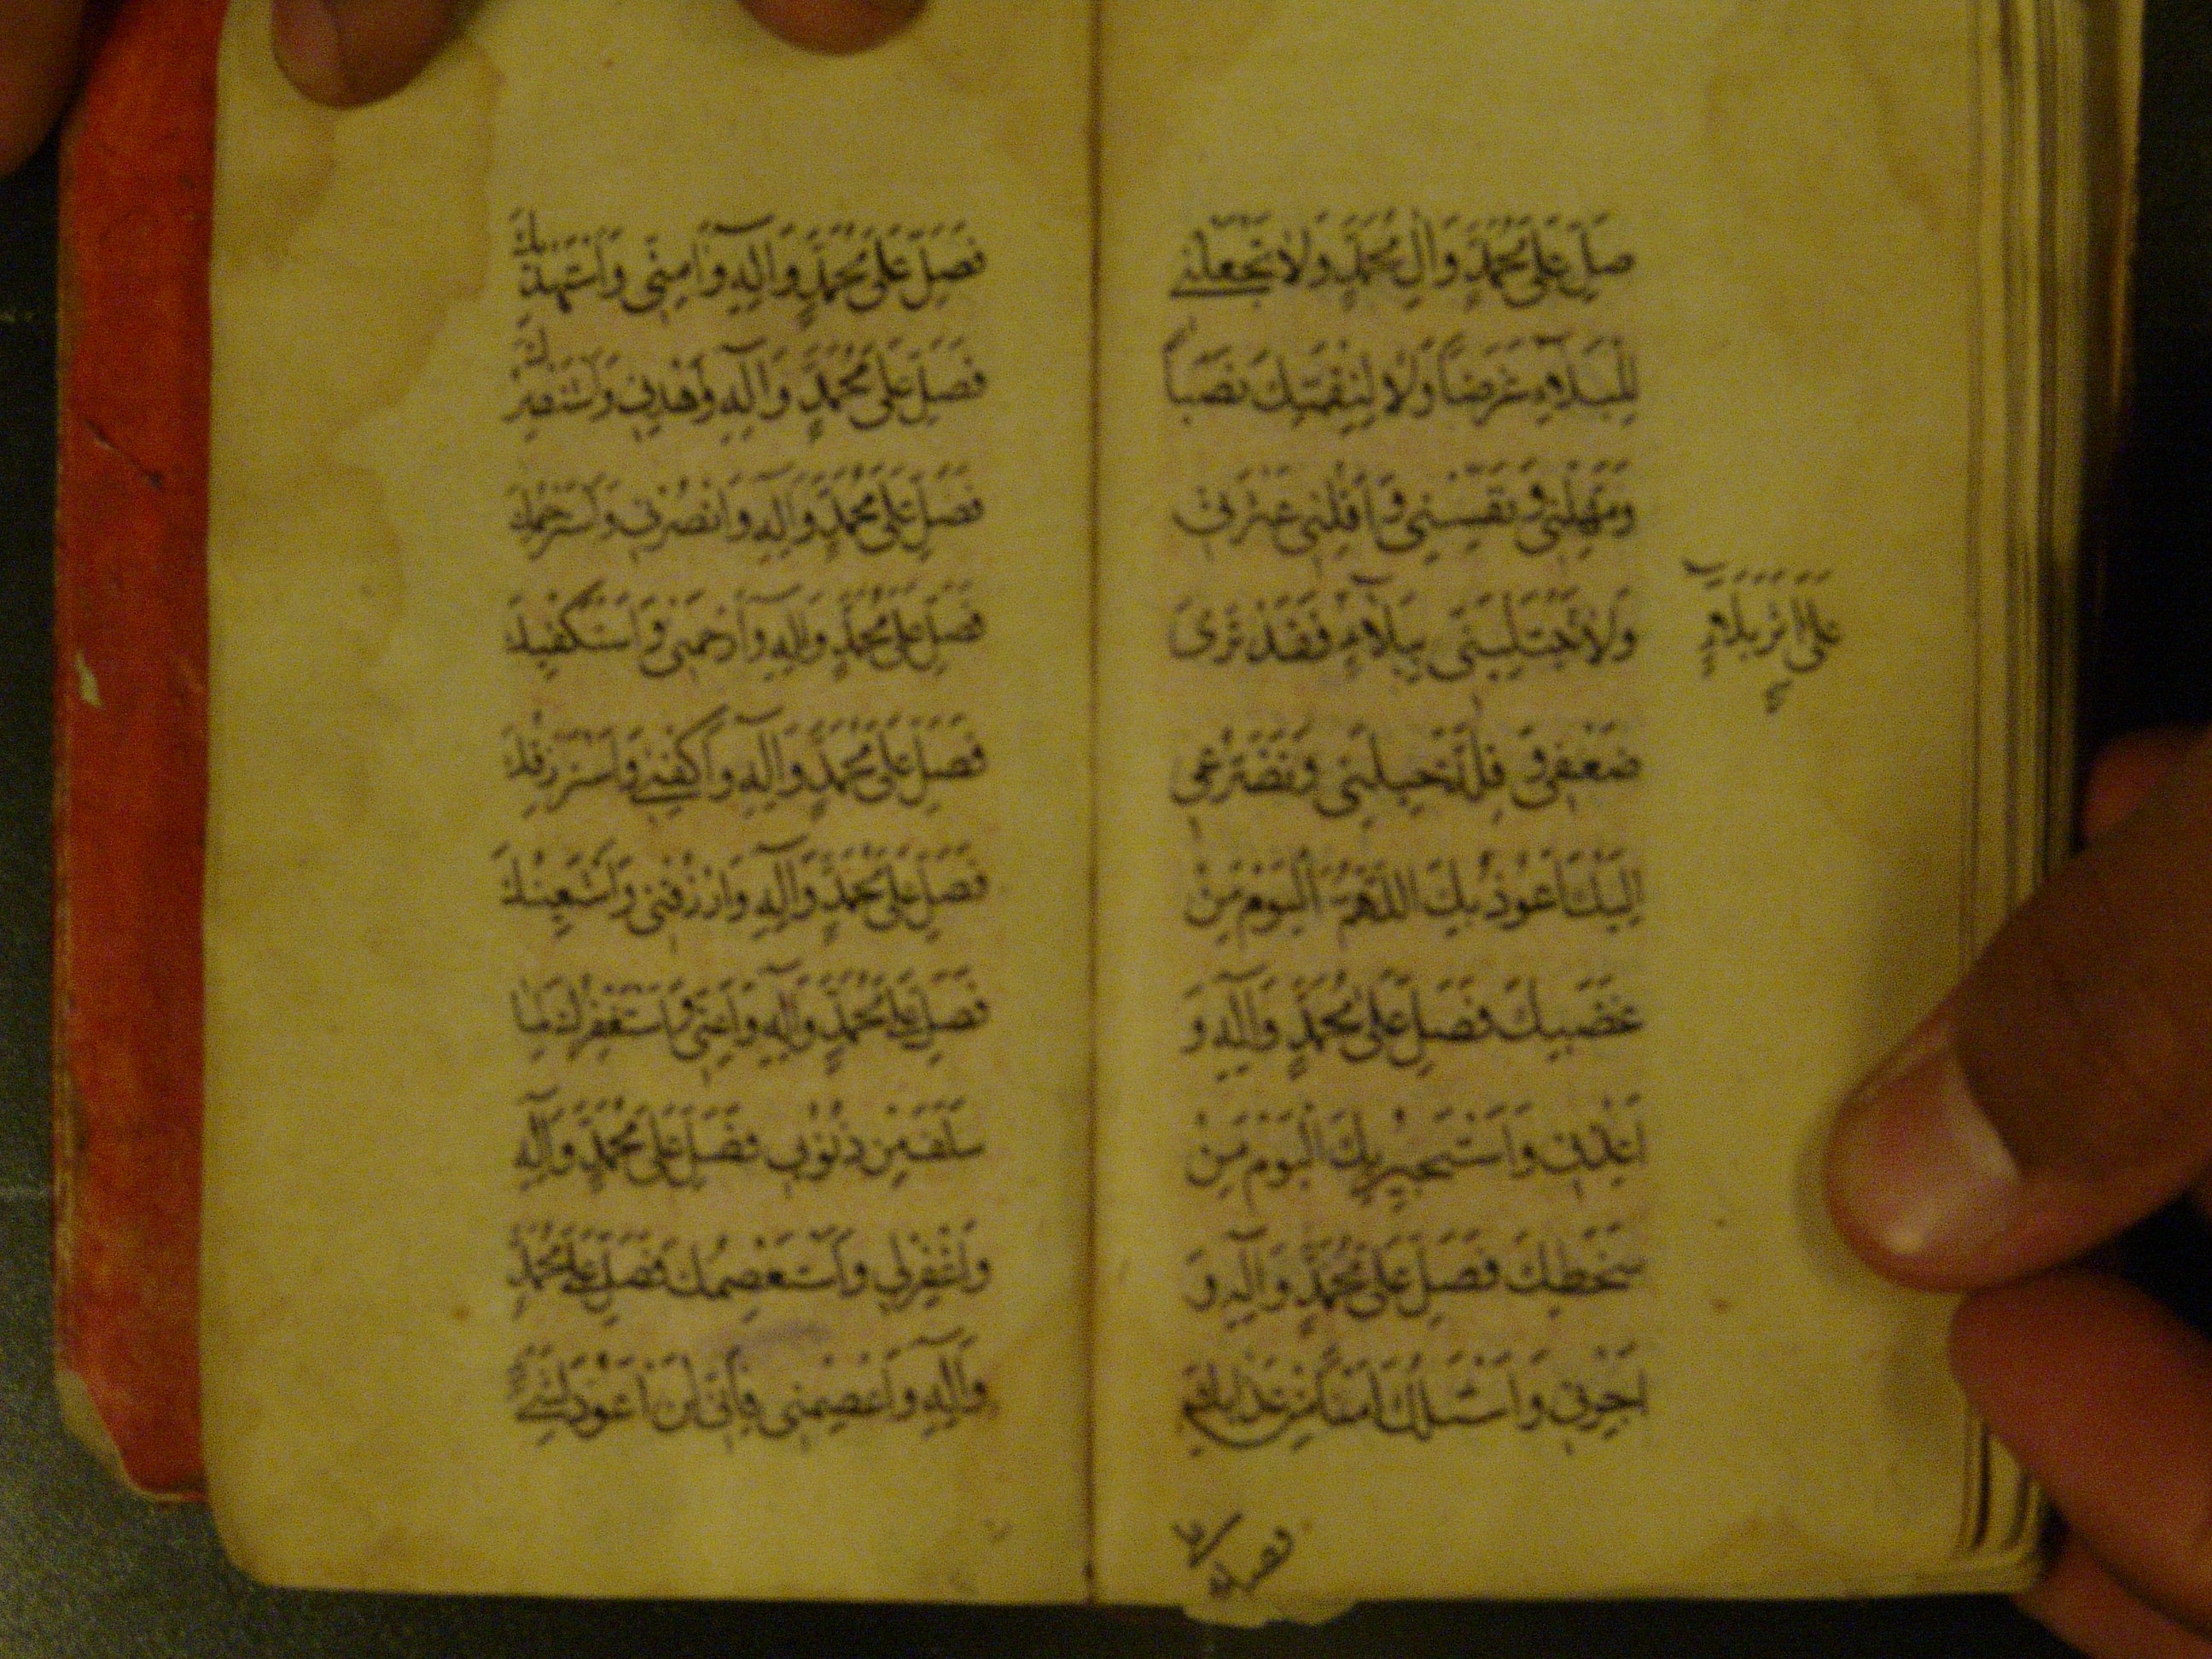 صَلِّ عَلَى مُحَمَّدٍ وَالِ مُحَمَّدٍ وَلَا تَجْعَلْنِي
لِلْبَلَآءِ غَرَضًا وَلَا لِنِقْمَتِكَ نَصَبًا
وَمَهِّلْنِي وَنَفِّسْنِي وَاَقِلْنِي عَثْرَتِي
وَلَا تَبْتَلِيَنِّي بِبَلَآءٍ فَقَدْ تَرَى
عَلَى اَثَرِ بَلَآءٍ
ضَعْفِي وَ قِلَّةَ حِيلَتِي وَتَضَرُّعِي
اِلَيْكَ اَعُوذُ بِكَ اللّٰهُمَّ الْيَوْمَ مِنْ
غَضَبِكَ فَصَلِّ عَلَى مُحَمَّدٍ وَآلِهِ وَ
اَعِذْنِي وَاَسْتَجِيرُ بِكَ الْيَوْمَ مِنْ
سَخَطِكَ فَصَلِّ عَلَى مُحَمَّدٍ وَآلِهِ وَ
اَجِرْنِي وَاَسْئَلُكَ اَمْنًا مِنْ عَذَابِكَ
فصل
فَصَلِّ عَلَى مُحَمَّدٍ وَآلِهِ وَآمِنِّي وَاَسْتَهْدِيكَ
فَصَلِّ عَلَى مُحَمَّدٍ وَآلِهِ وَاهْدِنِي وَاَسْتَنْصِرُكَ
فَصَلِّ عَلَى مُحَمَّدٍ وَآلِهِ وَانْصُرْنِي وَاَسْتَرْحِمُكَ
فَصَلِّ عَلَى مُحَمَّدٍ وَآلِهِ وَارْحَمْنِي وَاَسْتَكْفِيكَ
فَصَلِّ عَلَى مُحَمَّدٍ وَآلِهِ وَاكْفِنِي وَاَسْتَرْزِقُكَ
فَصَلِّ عَلَى مُحَمَّدٍ وَآلِهِ وَارْزُقْنِي وَاَسْتَعِينُكَ
فَصَلِّ عَلَى مُحَمَّدٍ وَآلِهِ وَاَعِنِّي وَاَسْتَغْفِرُكَ لِمَا
سَلَفَ مِنْ ذُنُوبِي فَصَلِّ عَلَى مُحَمَّدٍ وَآلِهِ
وَاغْفِرْلِي وَاَسْتَعْصِمُكَ فَصَلِّ عَلَى مُحَمَّدٍ
وَآلِهِ وَاعْصِمْنِي فَاِنِّي لَنْ اَعُودَ لِشَيْءٍ